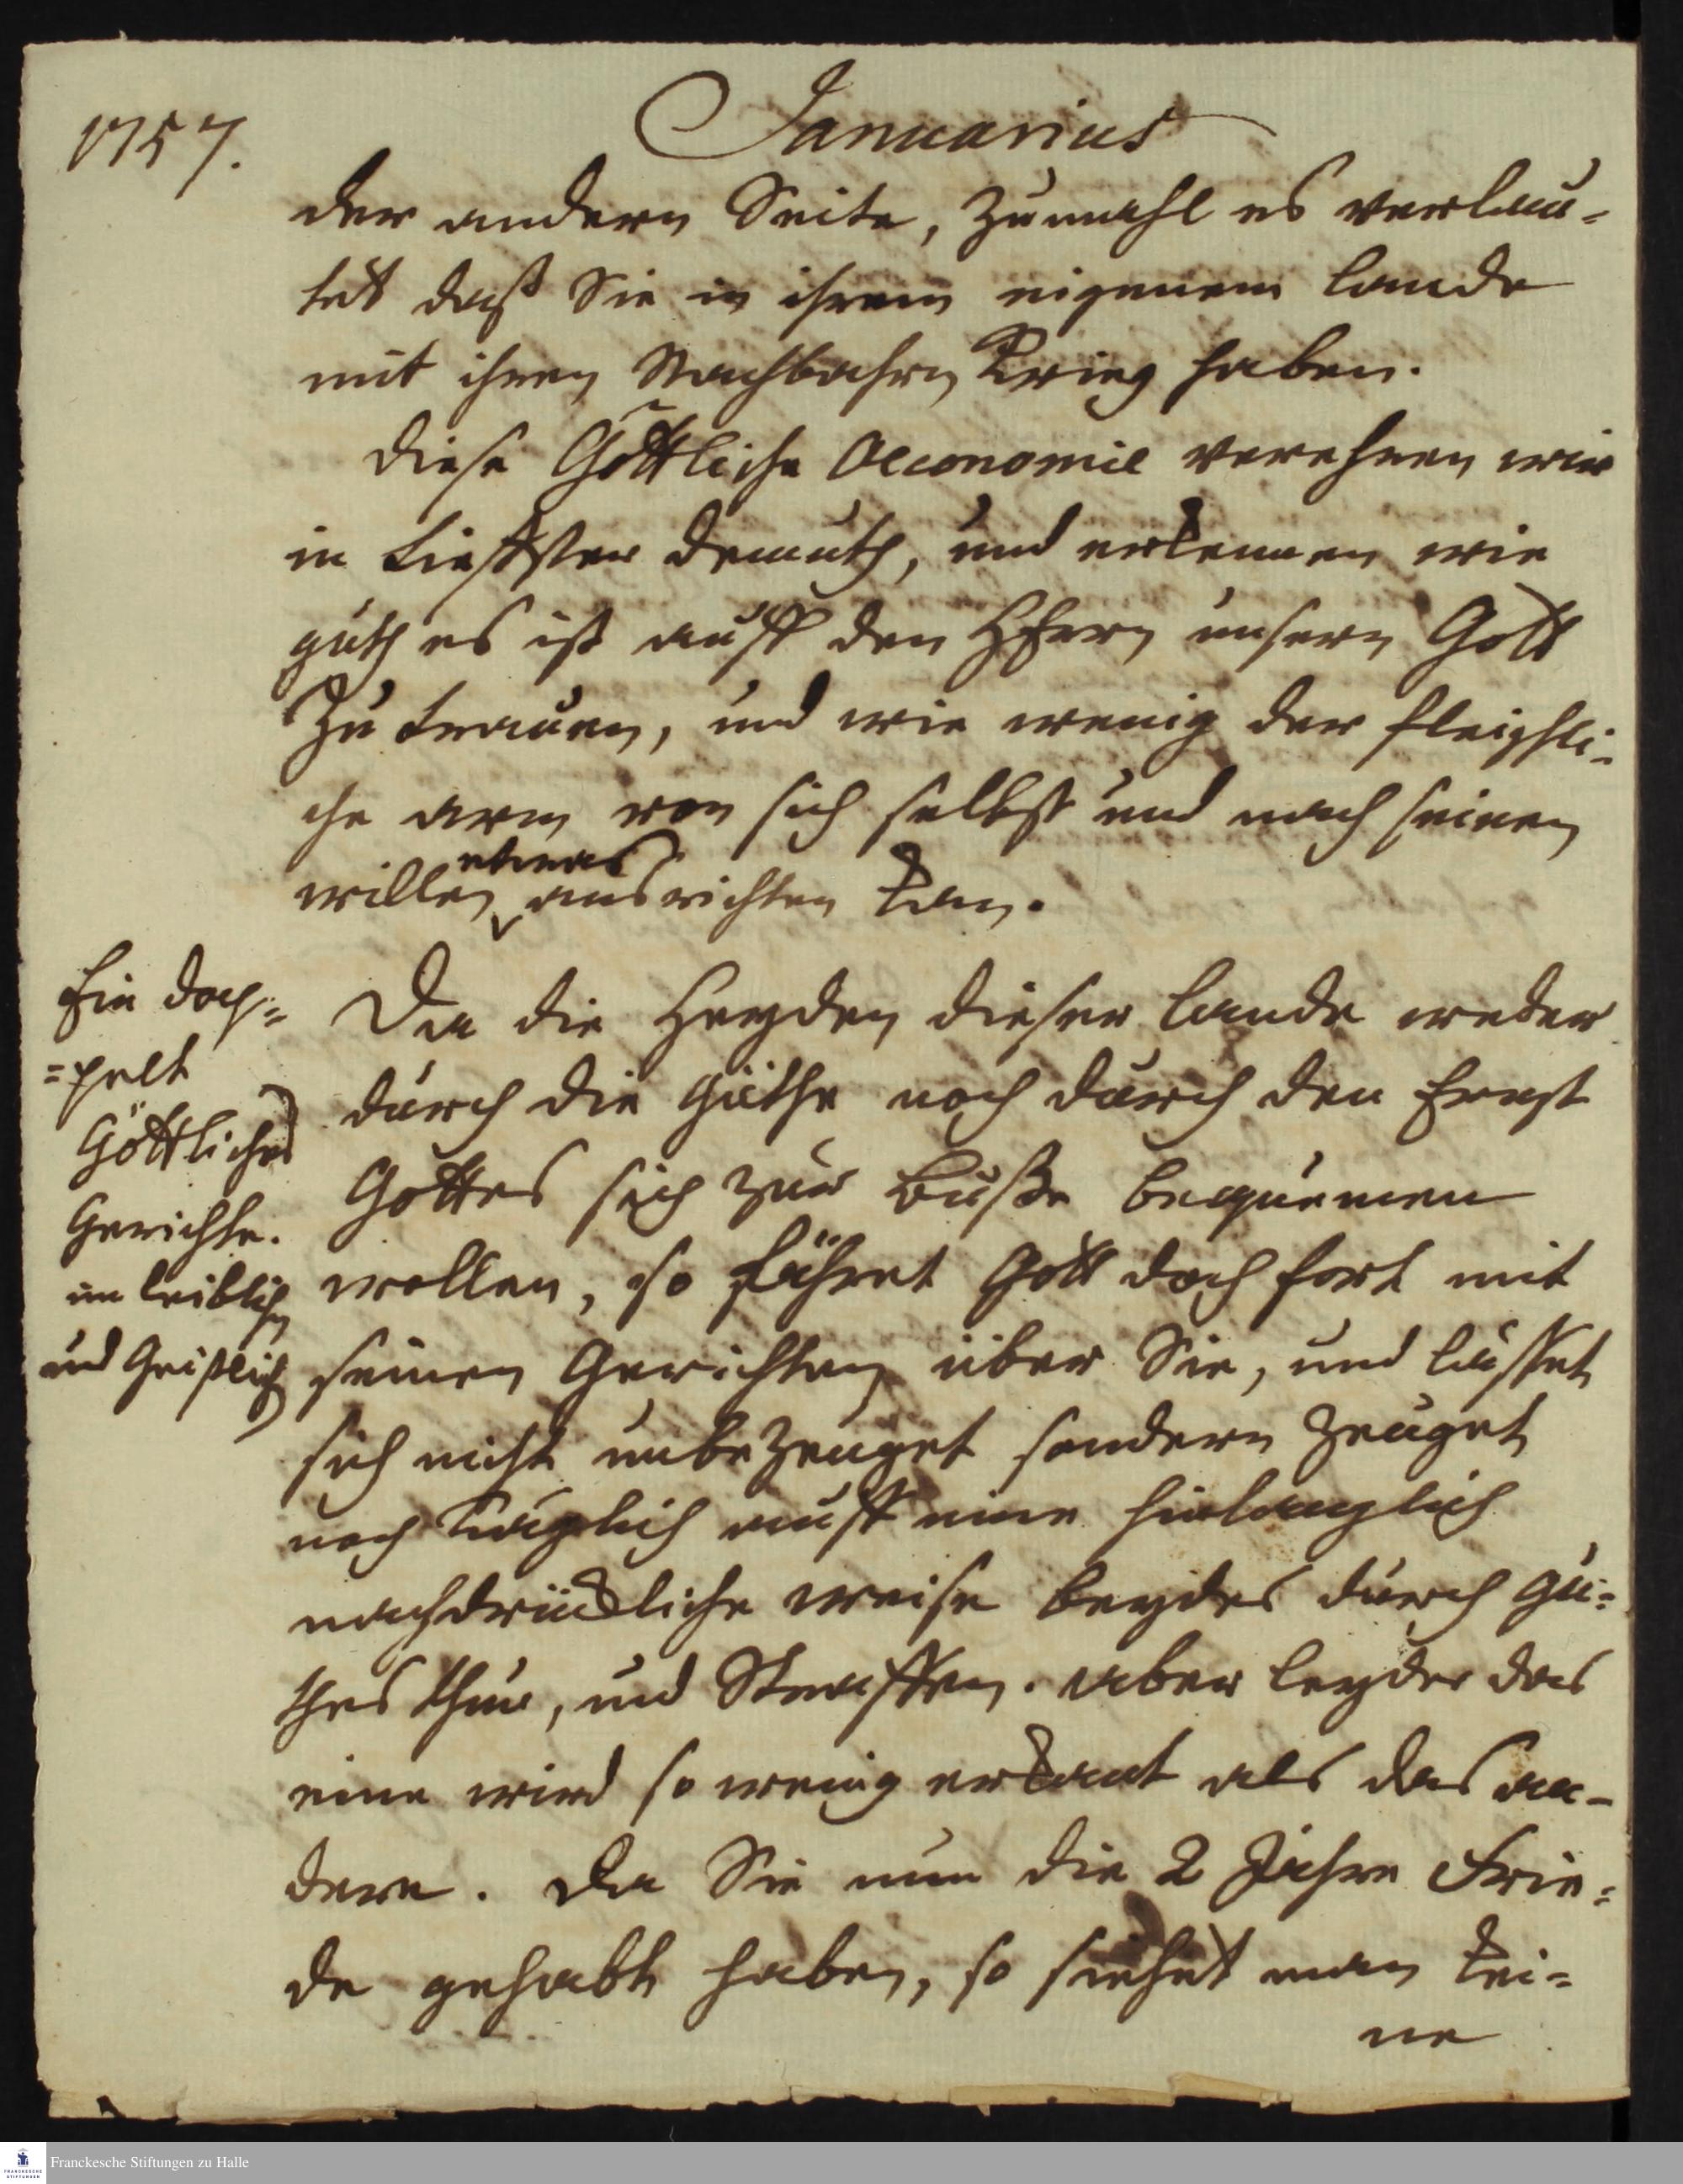 1757.
Januarius
der andern Seite, zumahl es verlau-
tet daß Sie in ihrem eigenem Lande
mit ihren Nachbahrn Krieg haben.
Diese Göttliche Oeconomie verehren wir
in tieffster Demuth, und erkennen wie
guth es ist auff den HErrn unsern Gott
zu trauen, und wie wenig der fleischli-
che arm von sich selbst und nach seinen
willen etwas ausrichten kan.
Ein dop=
=pelt
Göttliches
Gerichte.
im leiblichen
und Geistlichen
Da die Heyden dieser Lande weder
durch die Güthe noch durch den Ernst
Gottes sich zur Buße bequemen
wollen, so fähret Gott doch fort mit
seinen Gerichten über Sie, und lässet
sich nicht unbezeuget sondern zeuget
noch täglich auff eine hinlanglich
nachdrückliche weise beydes durch Gu=
thes thun, und Straffen. aber leyder das
eine wird so wenig erkant als das an-
dere. Da Sie nun die 2 Jahre Frie=
de gehabt haben, so siehet man kei=
ne
Franckesche Stiftungen zu Halle
FRANCKESCHE STIFTUNGEN